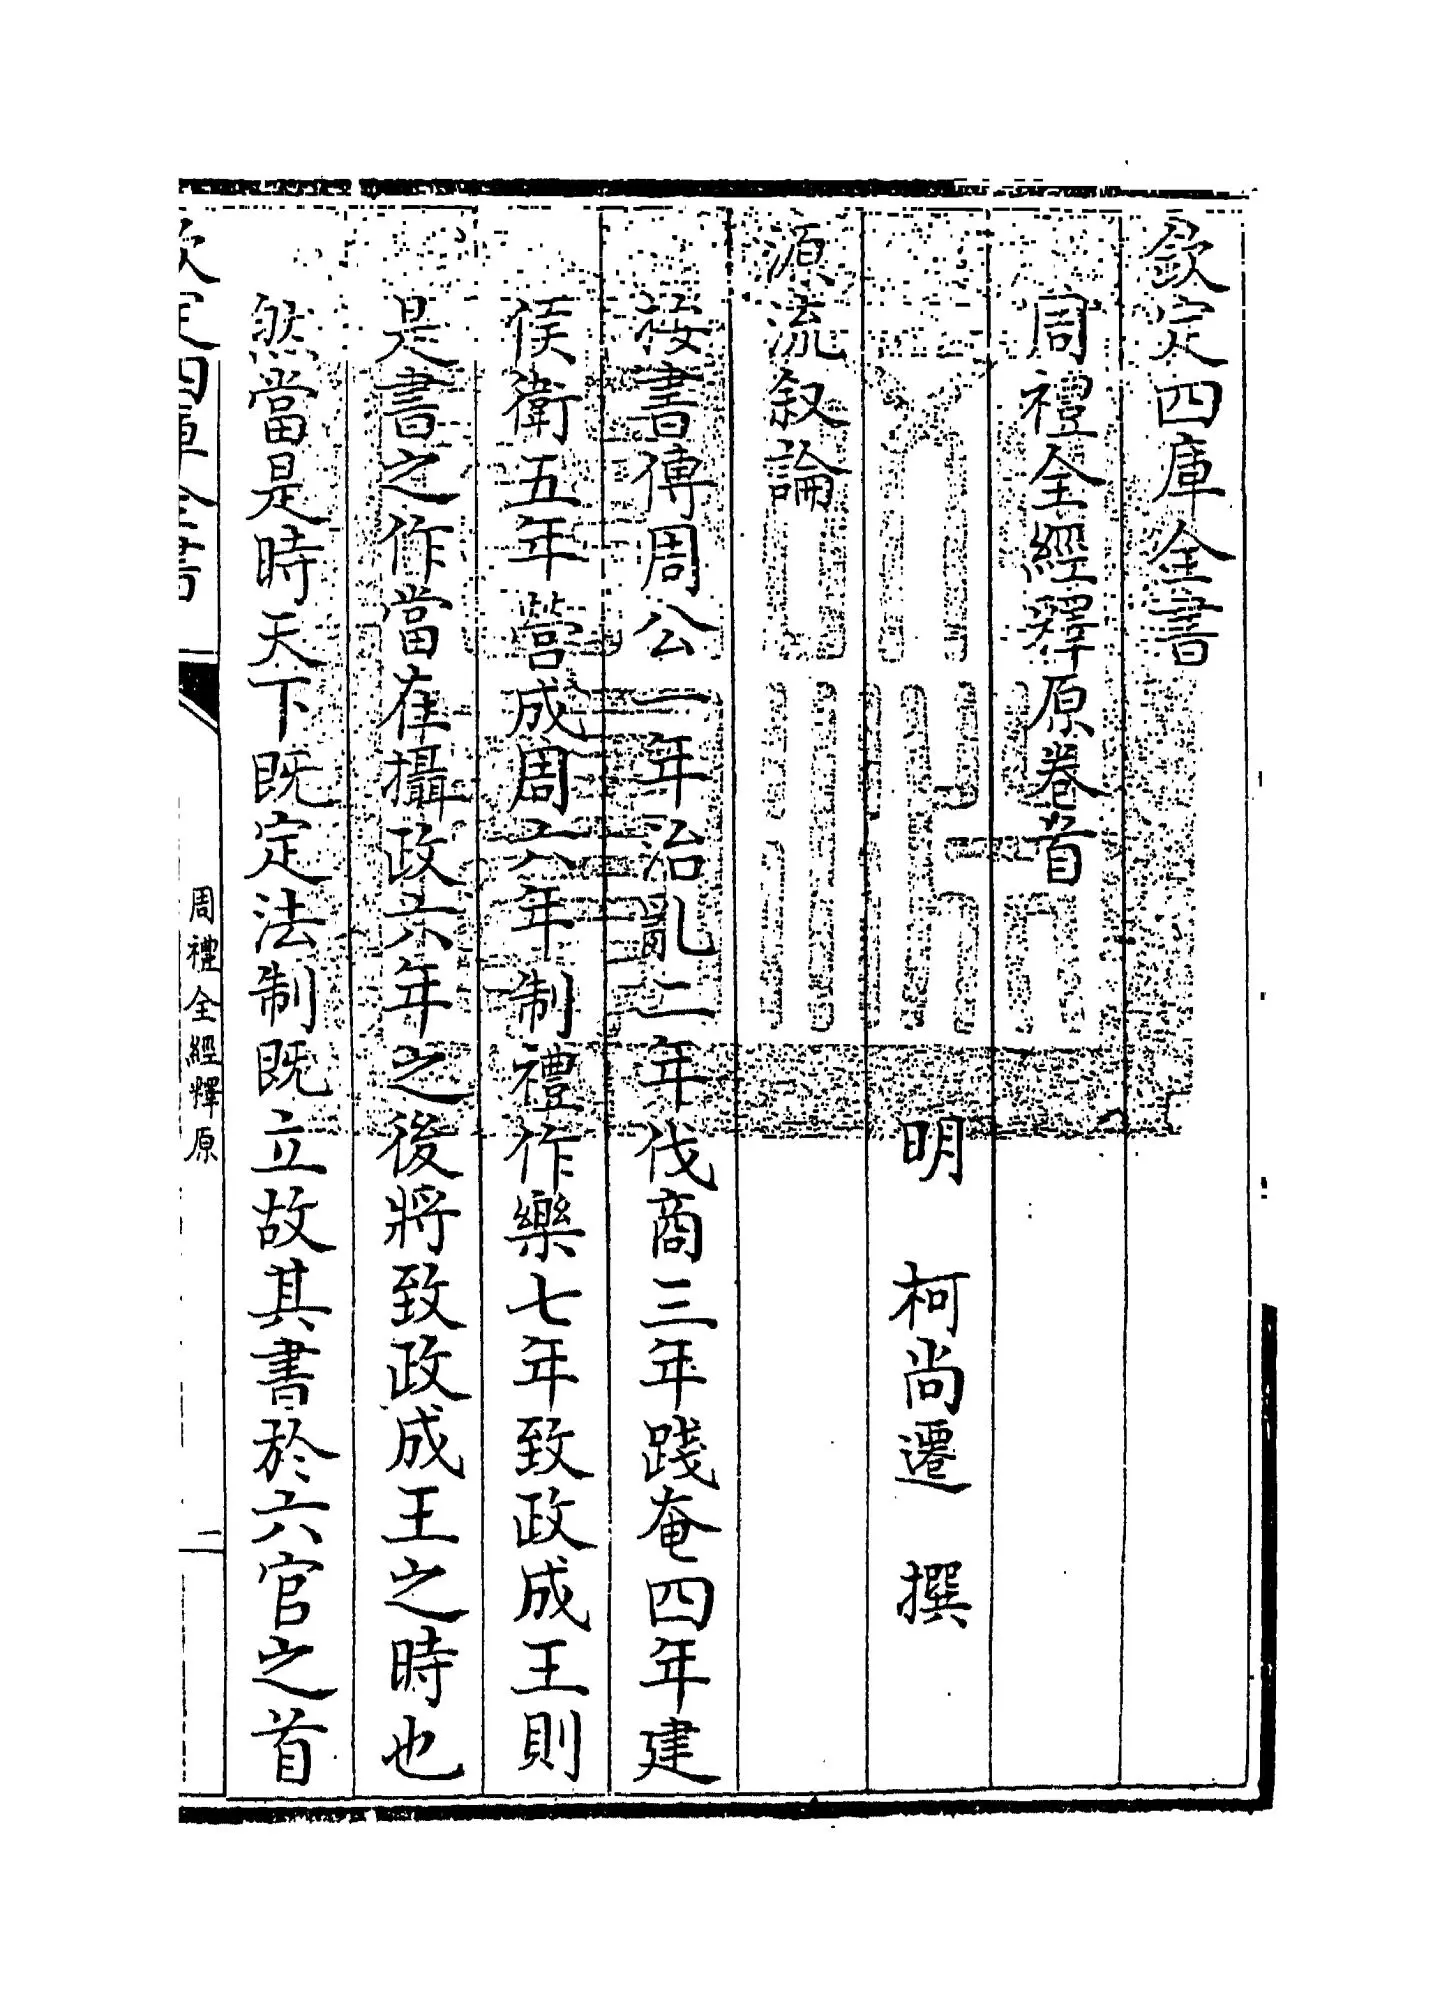 欽定四庫全書
周禮全經釋原卷首
明 柯尚遷 撰
源流叙論
按書傳周公一年治亂二年伐商三年踐奄四年建
侯衛五年營成周六年制禮作樂七年致政成王則
是書之作當在攝政六年之後將致政成王之時也
然當是時天下既定法制既立故其書於六官之首
欽定四庫全書
周禮全經釋原
二